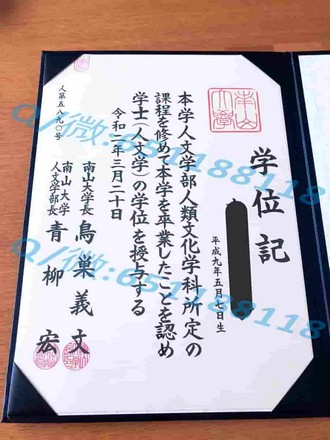 学位記
平成九年五月七日生
本学人文学部人類文化学科所定の
課程を修めて本学を卒業したことを認め
学士（人文学）の学位を授与する
令和二年三月二十日
南山大学長 鳥巣義文
南山大学
人文学部長 青柳宏
人第五八九〇号
南山大學
Q/微:651188118
Q/微:651188118